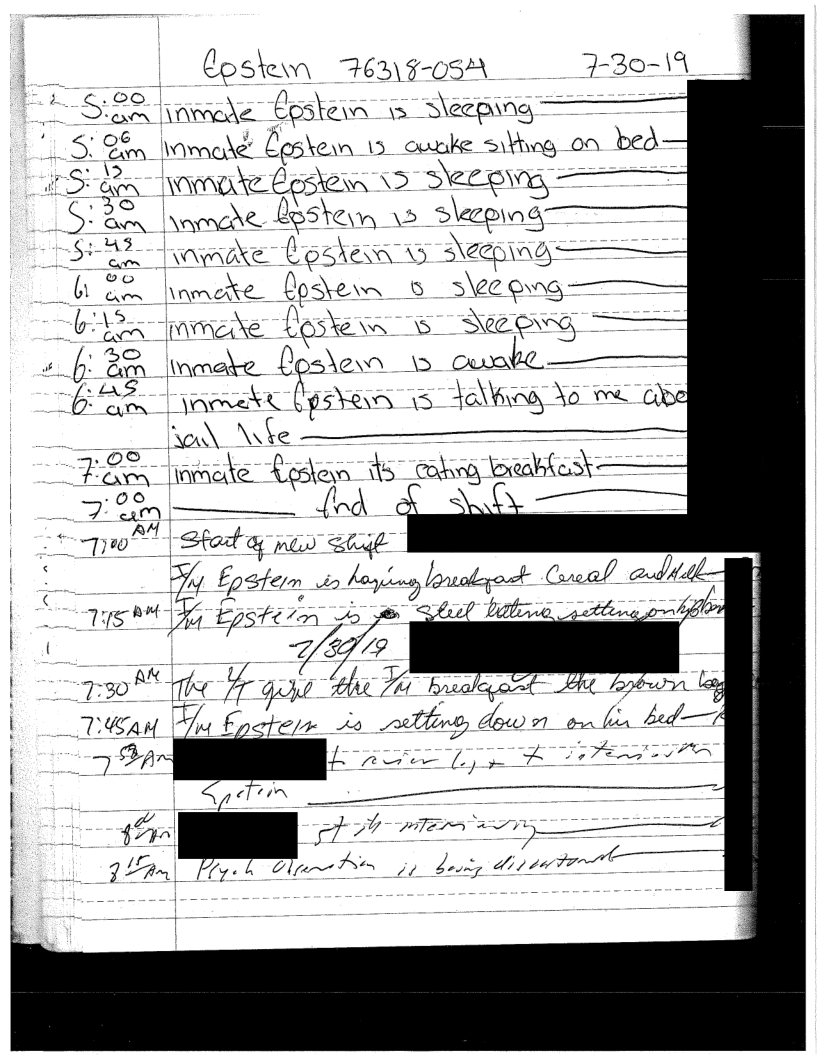 Epstein 76318-054 7-30-19
5:00 am inmate Epstein is sleeping
5:06 am inmate Epstein is awake sitting on bed
5:15 am inmate Epstein is sleeping
5:30 am inmate Epstein is sleeping
5:45 am inmate Epstein is sleeping
6:00 am inmate Epstein is sleeping
6:15 am inmate Epstein is sleeping
6:30 am inmate Epstein is awake
6:45 am inmate Epstein is talking to me abo
jail life
7:00 am inmate Epstein its eating breakfast
7:00 am End of shift
7:00 AM Start of new shift
I/M Epstein is having breakfast Cereal and Milk
7:15 AM I/M Epstein is steel eating setting on his
7/30/19
7:30 AM The give the I/M breakfast the brown bag
7:45 AM I/M Epstein is setting down on his bed
7 AM review log +
Epstein
8 AM interviewing
8 15 AM Psych Observation is being discontinued